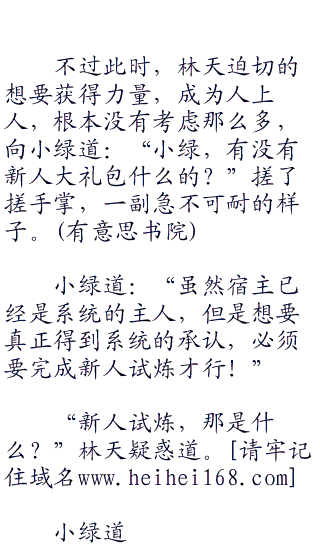 不过此时，林天迫切的
想要获得力量，成为人上
人，根本没有考虑那么多，
向小绿道：“小绿，有没有
新人大礼包什么的？”搓了
搓手掌，一副急不可耐的样
子。(有意思书院)
小绿道：“虽然宿主已
经是系统的主人，但是想要
真正得到系统的承认，必须
要完成新人试炼才行！”
“新人试炼，那是什
么？”林天疑惑道。[请牢记
住域名www.heihei168.com]
小绿道